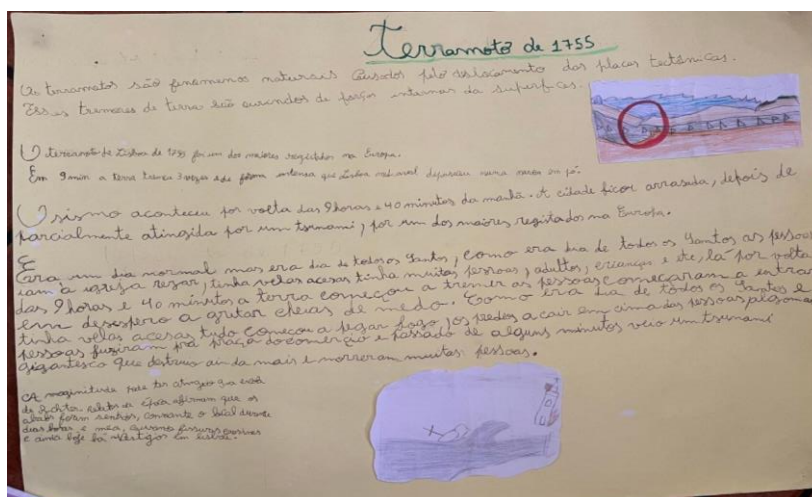 Terramoto de 1755
Os terramotos são fenomenos naturais causados pelo deslocamento das placas tectónicas.
Esses tremores de terra são de forças internas da superficas.
O terramoto de Lisboa de 1755 foi um dos maiores registados na Europa.
Em 9 min a terra tremeu 3 vezes de forma intensa que Lisboa medieval
O sismo aconteceu por volta das 9 horas e 40 minutos da manhã. A cidade ficou arrasada, depois de
parcialmente atingida por um tsunami, por um dos maiores registados na Europa.
Era um dia normal mas era dia de todos os Santos, como era dia de todos os Santos as pessoas
iam à igreja rezar, tinha velas acesas tinha muitas pessoas, adultos, crianças e etc, la por volta
das 9 horas e 40 minutos a terra começou a tremer as pessoas começaram a entrar
em desespero a gritar cheias de medo. Como era dia de todos os Santos e
tinha velas acesas tudo começou a pegar fogo, os predios a cair em cima das pessoas, algumas
pessoas fugiram pra praça do comercio e passado de alguns minutos veio um tsunami
gigantesco que destruiu ainda mais e morreram muitas pessoas.
A magnitude pode ter atingido 9 na escala
de Richter, relatos da época afirmam que os
abalos foram sentidos, o local durante
duas horas e meia, fissuras
e ainda hoje há vestigios em Lisboa.